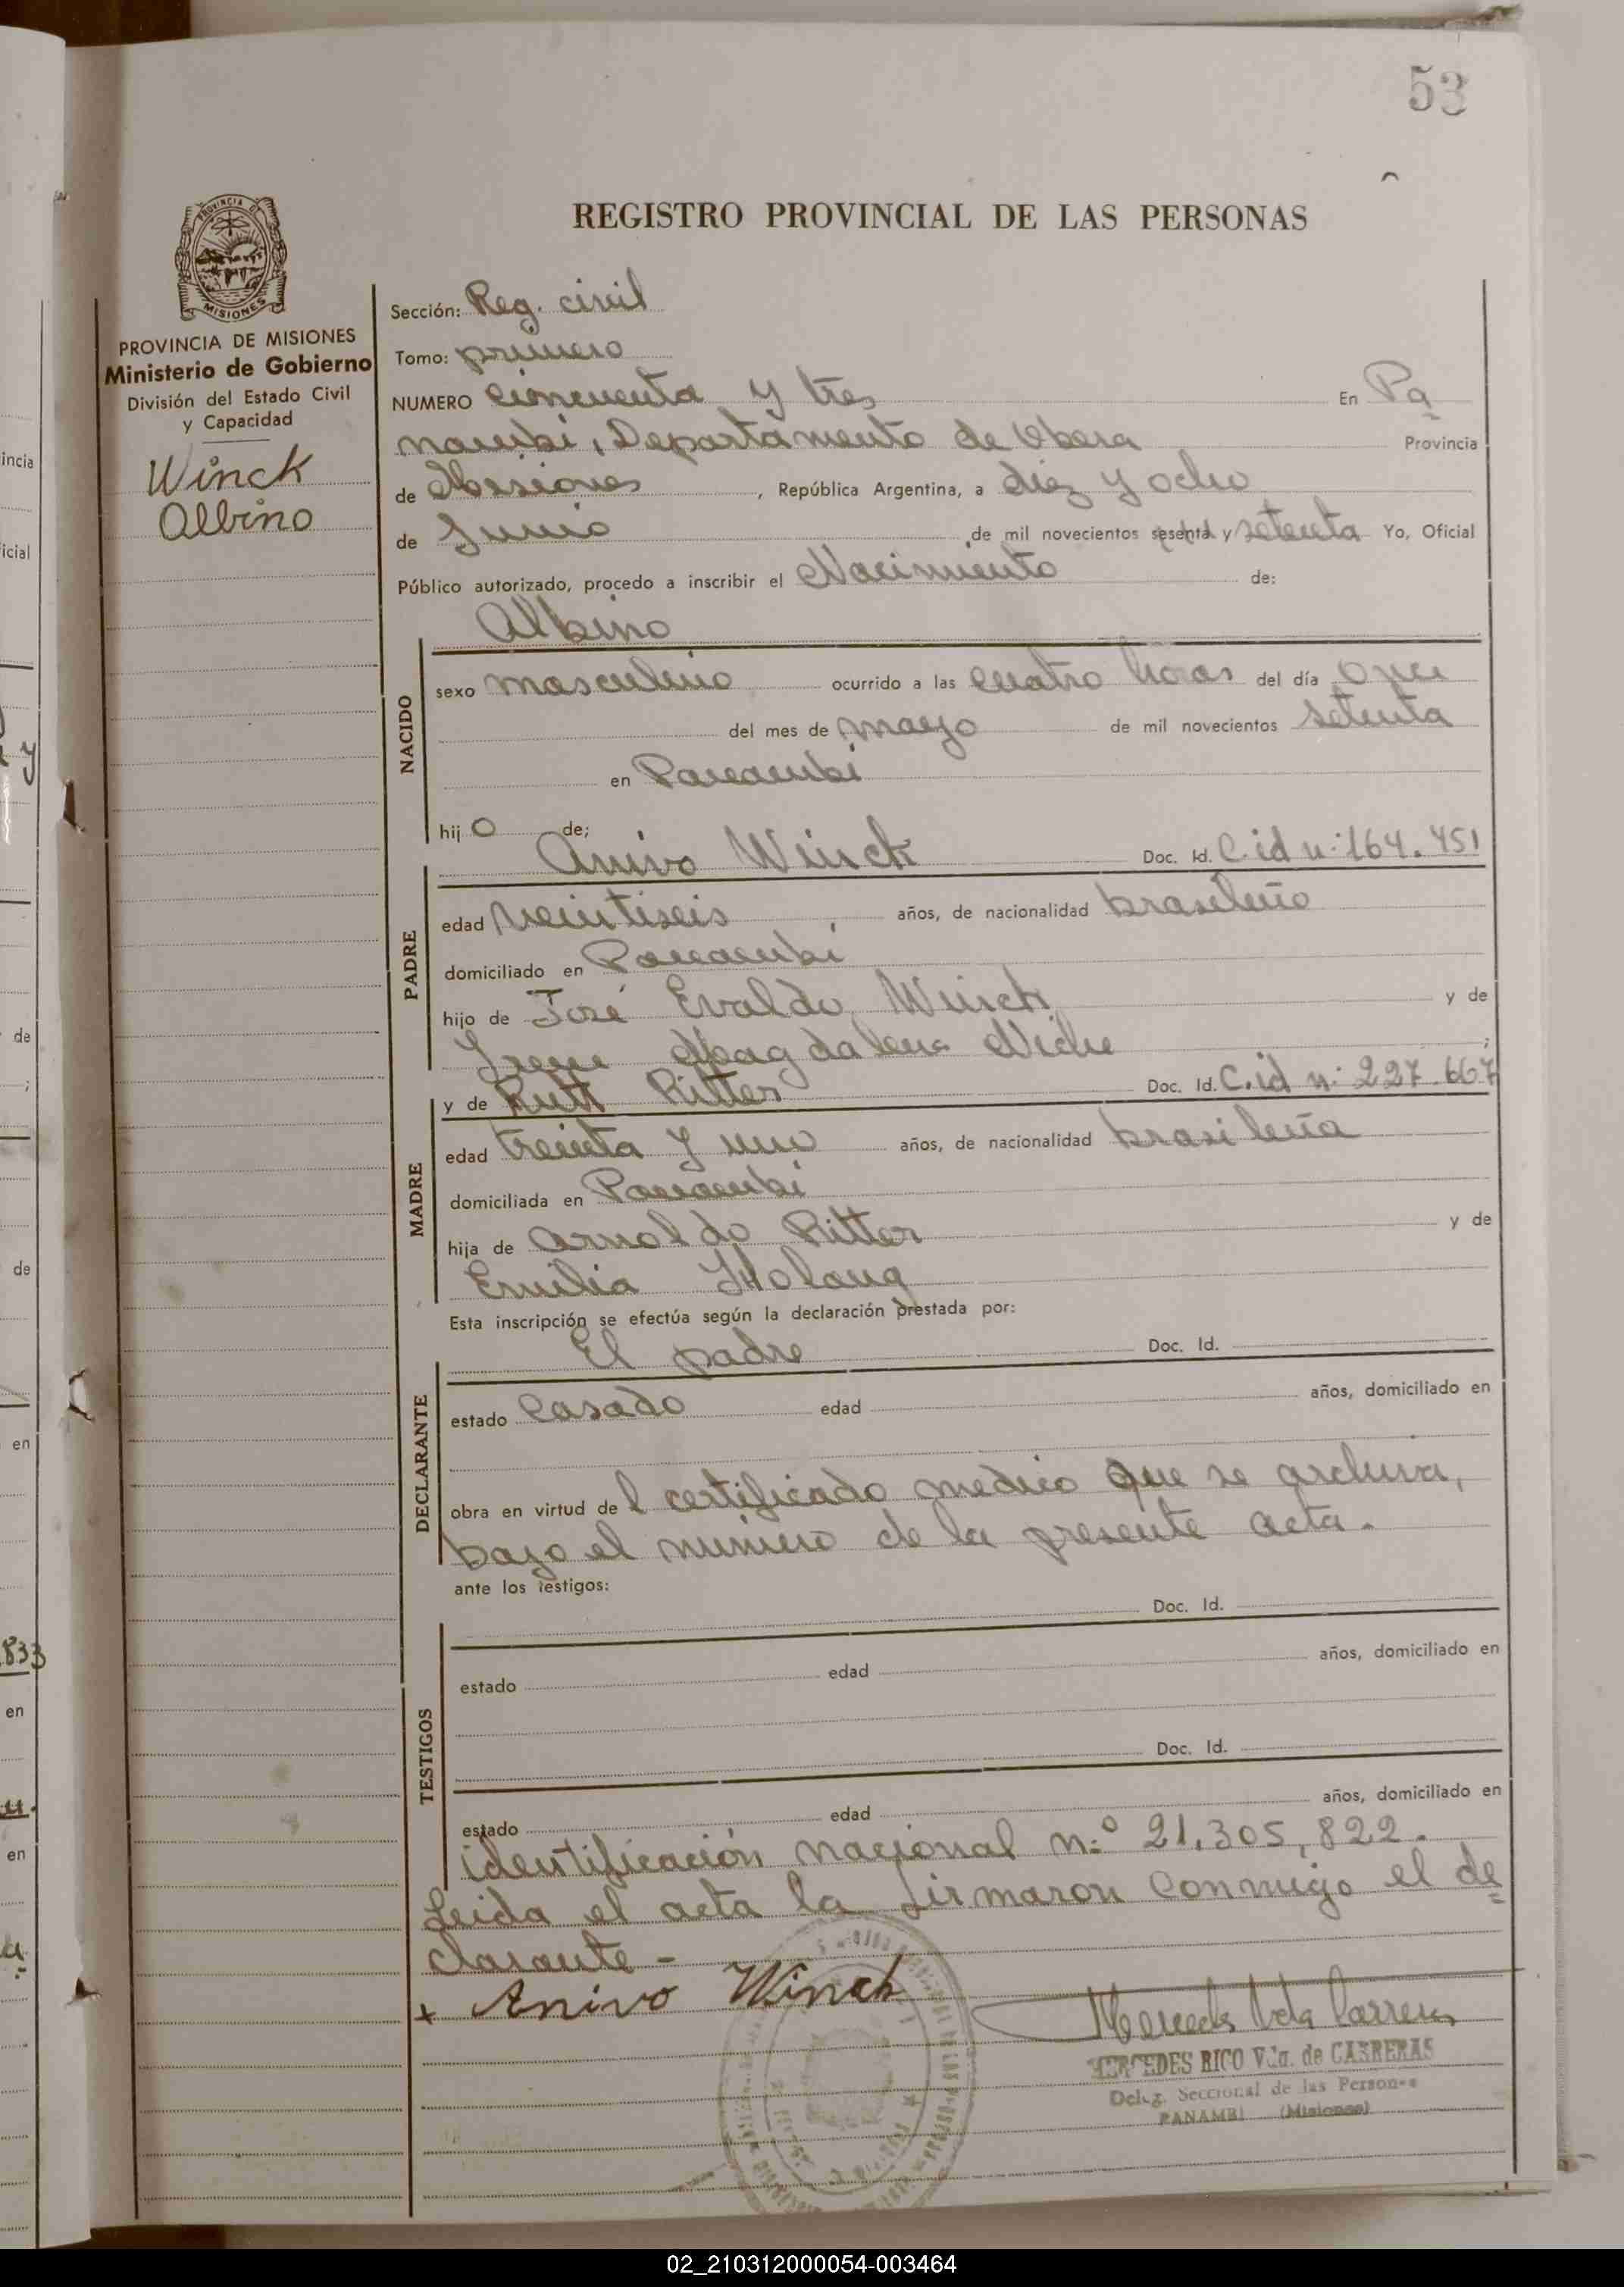 53
REGISTRO PROVINCIAL DE LAS PERSONAS
PROVINCIA DE
MISIONES
PROVINCIA DE MISIONES
Ministerio de Gobierno
División del Estado Civil
y Capacidad
Winck
Albino
Sección: Reg. civil
Tomo: primero
NUMERO cincuenta y tres En Pa
nambi, Departamento de Obera Provincia
de Misiones, República Argentina, a diez y ocho
de Junio de mil novecientos sesenta y setenta Yo, Oficial
Público autorizado, procedo a inscribir el Nacimiento de:
Albino
NACIDO
sexo masculino ocurrido a las cuatro horas del día once
del mes de mayo de mil novecientos setenta
en Panambi
hij o de;
Anivo Winck Doc. Id. C. id n: 164.451
PADRE
edad veintiseis años, de nacionalidad brasileño
domiciliado en Panambi
hijo de José Evaldo Winck y de
Irene Magdalena
y de Ruth Ritter Doc. Id. C. id n: 227.667
MADRE
edad treinta y uno años, de nacionalidad brasileña
domiciliada en Panambi
hija de Arnoldo Ritter y de
Emilia
Esta inscripción se efectúa según la declaración prestada por:
El padre Doc. Id.
DECLARANTE
estado Casado edad años, domiciliado en
obra en virtud de l certificado medico que se archiva,
bajo el numero de la presente acta.
ante los testigos:
Doc. Id.
TESTIGOS
estado edad años, domiciliado en
Doc. Id.
estado edad años, domiciliado en
identificación nacional n:º 21.305.822.
Leida el acta la firmaron conmigo el de
clarante -
+ Anivo Winck
Mercedes Vda Carreras
MERCEDES RICO Vda. de CARRERAS
Deleg. Seccional de las Personas
PANAMBI (Misiones)
incia
icial
y
de
;
de
en
833
en
en
02_210312000054-003464